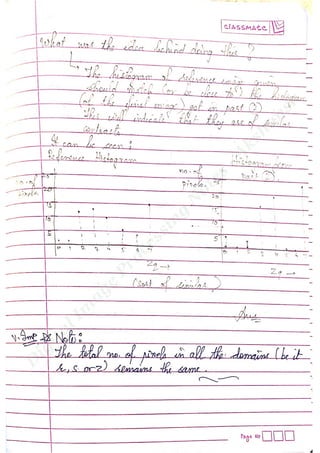 classmate
What was the idea behind doing this ?
→ The histogram of reference image given
should match (or be close to) the histogram
of the final image get in part (2)
This will indicate that they are of similar
contrasts
It can be seen :
Reference Histogram
Histogram from
part (2)
no. of
pixels
25
20
15
10
5
0 1 2 3 4 5 6 7
Zq →
no. of
pixels
5
0 1 2 3 4 5 6 7
Zq →
(sort of similar)
Ans
V. Imp Note :
The total no. of pixels in all the domains (be it
r, s or z) remains the same .
Page No